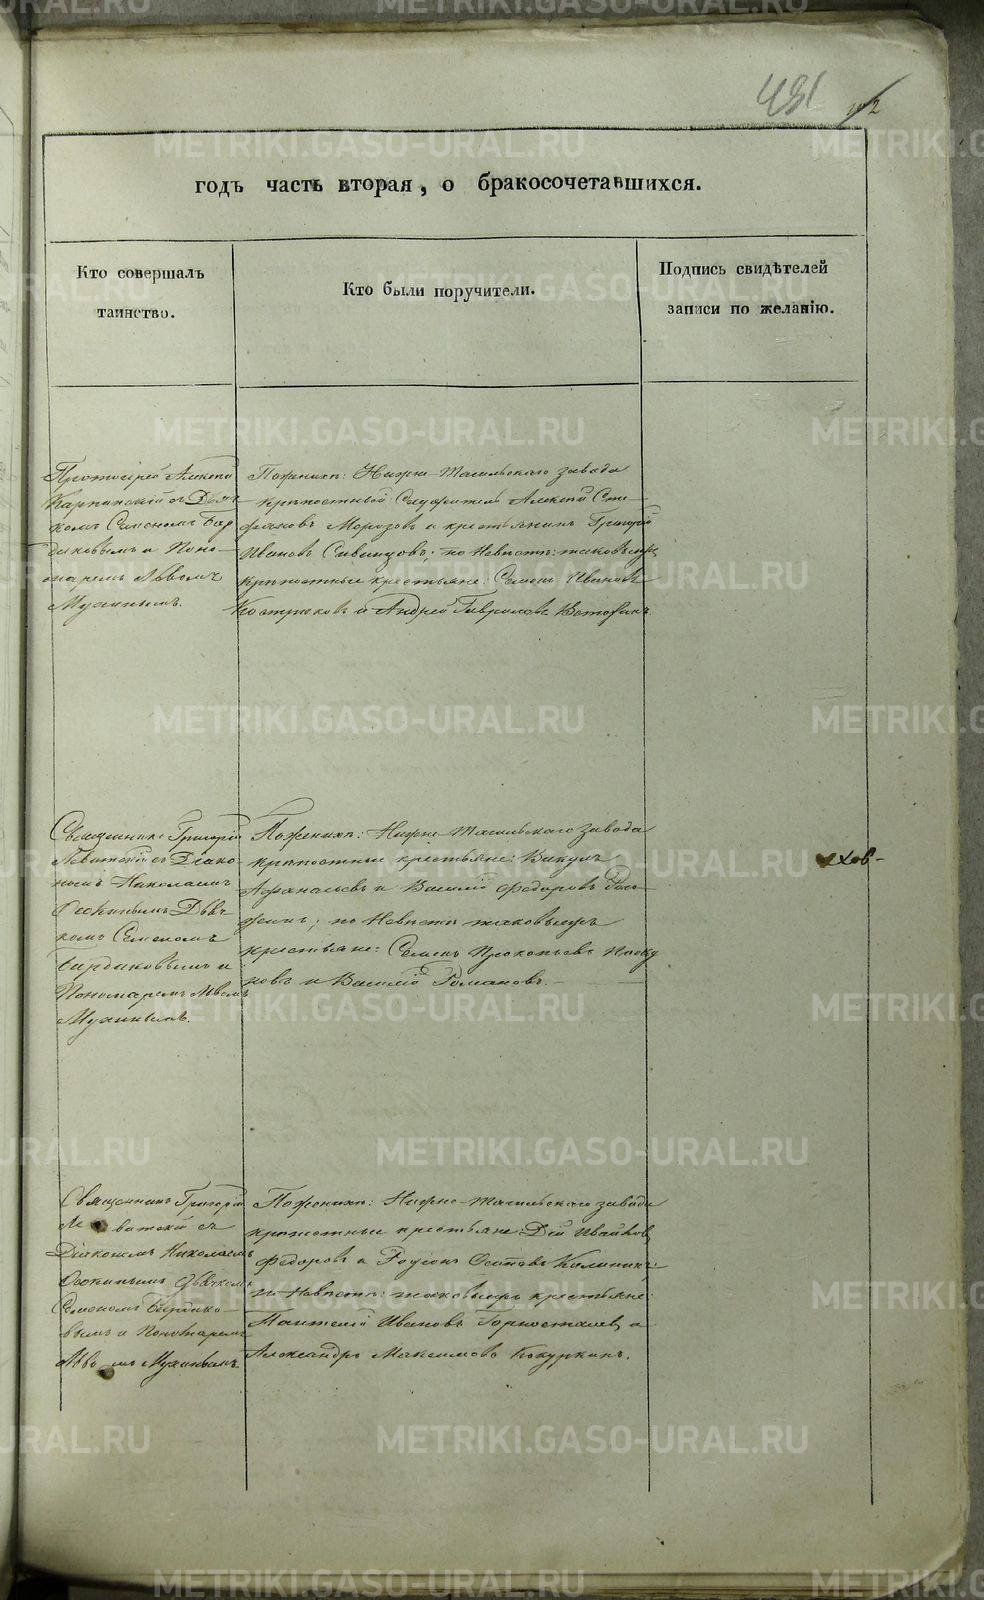 481
годъ часть вторая, о бракосочетавшихся.
Кто совершалъ
таинство.
Кто были поручители.
Подпись свидѣтелей
записи по желанію.
Протоіерей Алексѣй
Карпинскій съ Дьяч-
комъ Семеномъ Бир
дюковымъ и Поно-
маремъ Львомъ
Мухинымъ.
По женихѣ: Нижне-Тагильскаго завода
крѣпостный Служитель Алексѣй Сте-
фановъ Морозовъ и крестьянинъ Григорій
Ивановъ; по Невѣстѣ: таковыеже
крѣпостные крестьяне: Семенъ Ивановъ
Костриковъ и Андрей Гавриловъ
Священникъ Григорій
Левитскій съ Діако-
номъ Николаемъ
Дьяч-
комъ Семеномъ
Бирдюковымъ и
Пономаремъ Львомъ
Мухинымъ.
По женихѣ: Нижне-Тагильскаго завода
крѣпостные крестьяне: Викулъ
Афанасьевъ и Василій Федоровъ
по Невѣстѣ таковыежъ
крестьяне: Семенъ Прокопьевъ Писку
новъ и Василій Романовъ.
Священникъ Григорій
Левитскій съ
Діакономъ Николаемъ
Дьячкомъ
Семеномъ Бирдюко-
вымъ и Пономаремъ
Львомъ Мухинымъ.
По женихѣ: Нижно-Тагильскаго завода
крѣпостные крестьяне:
Федоровъ и Родіонъ Осиповъ Калининъ:
по Невѣстѣ: таковыежъ крестьяне:
Пантелей Ивановъ Горносталевъ и
Александръ Максимовъ Кокуркинъ.
METRIKI.GASO-URAL.RU